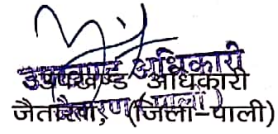 उपखण्ड अधिकारी
उपखण्ड अधिकारी
जैतारण, (जिला–पाली)